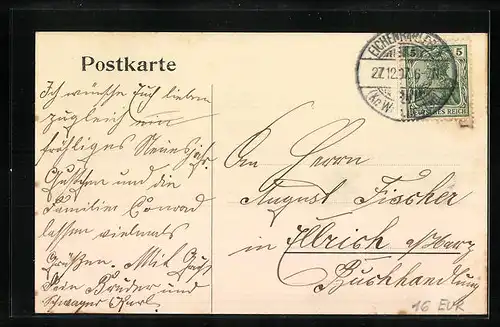 Postkarte
EICHENBARLEBEN
27.12.07. 6-7N.
5
DEUTSCHES REICH
Ich wünsche Euch lieben
zugleich ein
fröhliges Neues Jahr.
Gustchen und die
Familie Conrad
lassen vielmals
Grüßen. Mit Gruß
Dein Bruder und
Schwager Karl.
An Herrn
August Fischer
in Ellrich a/Harz
Buchhandlung
16 EUR